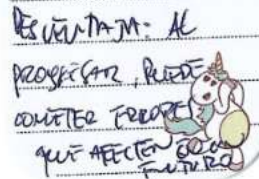 DESVENTAJA: AL
PROGRESAR, PUEDE
COMETER ERRORES
QUE AFECTEN
FUTURO